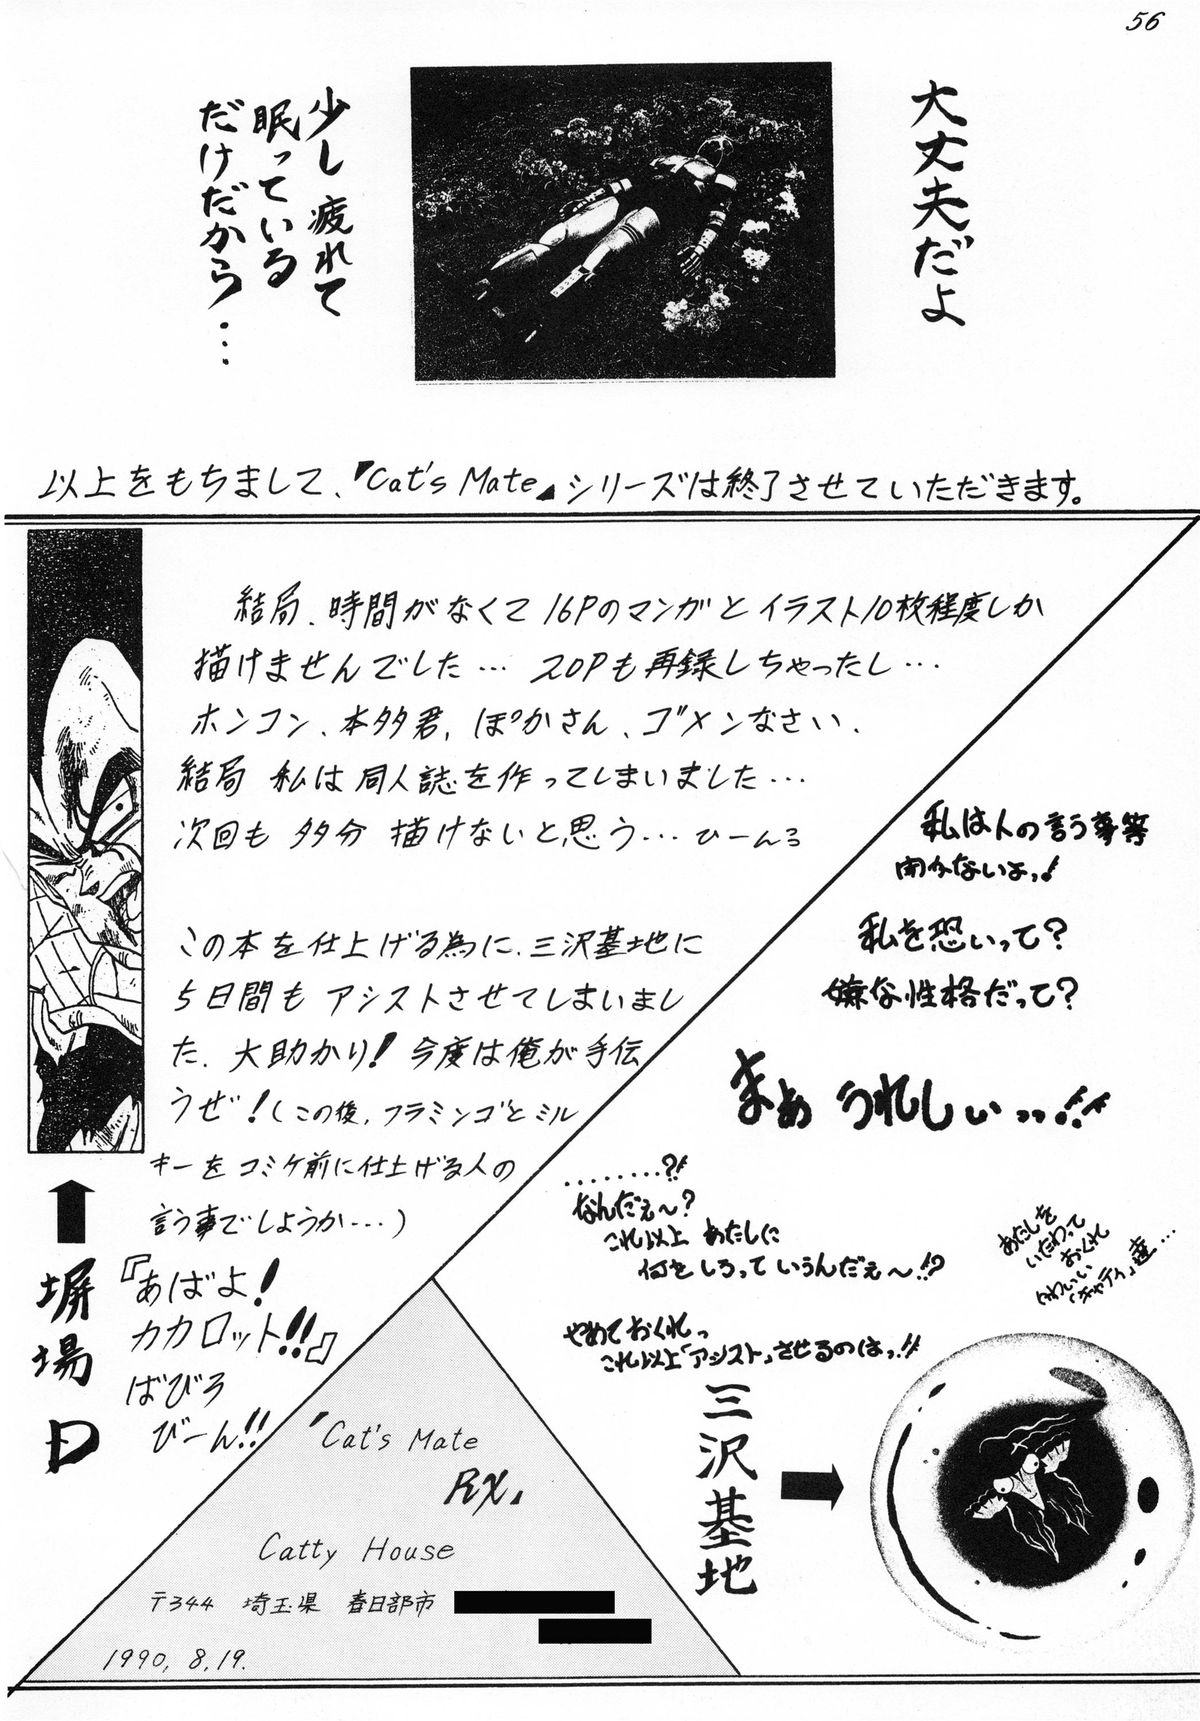 56
大丈夫だよ
少し疲れて
眠っている
だけだから…
以上をもちまして、『Cat's Mate』シリーズは終了させていただきます。
結局、時間がなくて16Pのマンガとイラスト10枚程度しか
描けませんでした… 20Pも再録しちゃったし…
ホンコン、本多君、ぽかさん、ゴメンなさい、
結局 私は同人誌を作ってしまいました…
次回も 多分 描けないと思う… ひーんろ
この本を仕上げる為に、三沢基地に
5日間も アシストさせてしまいまし
た、大助かり! 今度は俺が手伝
うぜ!(この後、フラミンゴとミル
キーをコミケ前に仕上げる人の
言う事でしょうか…)
『あばよ!
カカロット!!』
ばびろ
びーん!!
塀場日
私は人の言う事等
聞かないよっ!
私を恐いって?
嫌な性格だって?
まぁ うれしぃっっ!!
........?!
なんだぇ~?
これ以上 あたしに
何をしろって いうんだぇ~!?
あたしを
いたわって
おくれ
かわいい
「キャティ」達…
やめておくれっ
これ以上「アシスト」させるのはっ!!
三沢基地
『Cat's Mate
RX』
Catty House
〒344 埼玉県 春日部市
1990, 8, 19.